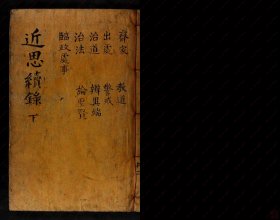 近思續錄 下
齊家
出處
治道
治法
臨政處事
教道
警戒
辨異端
論聖賢